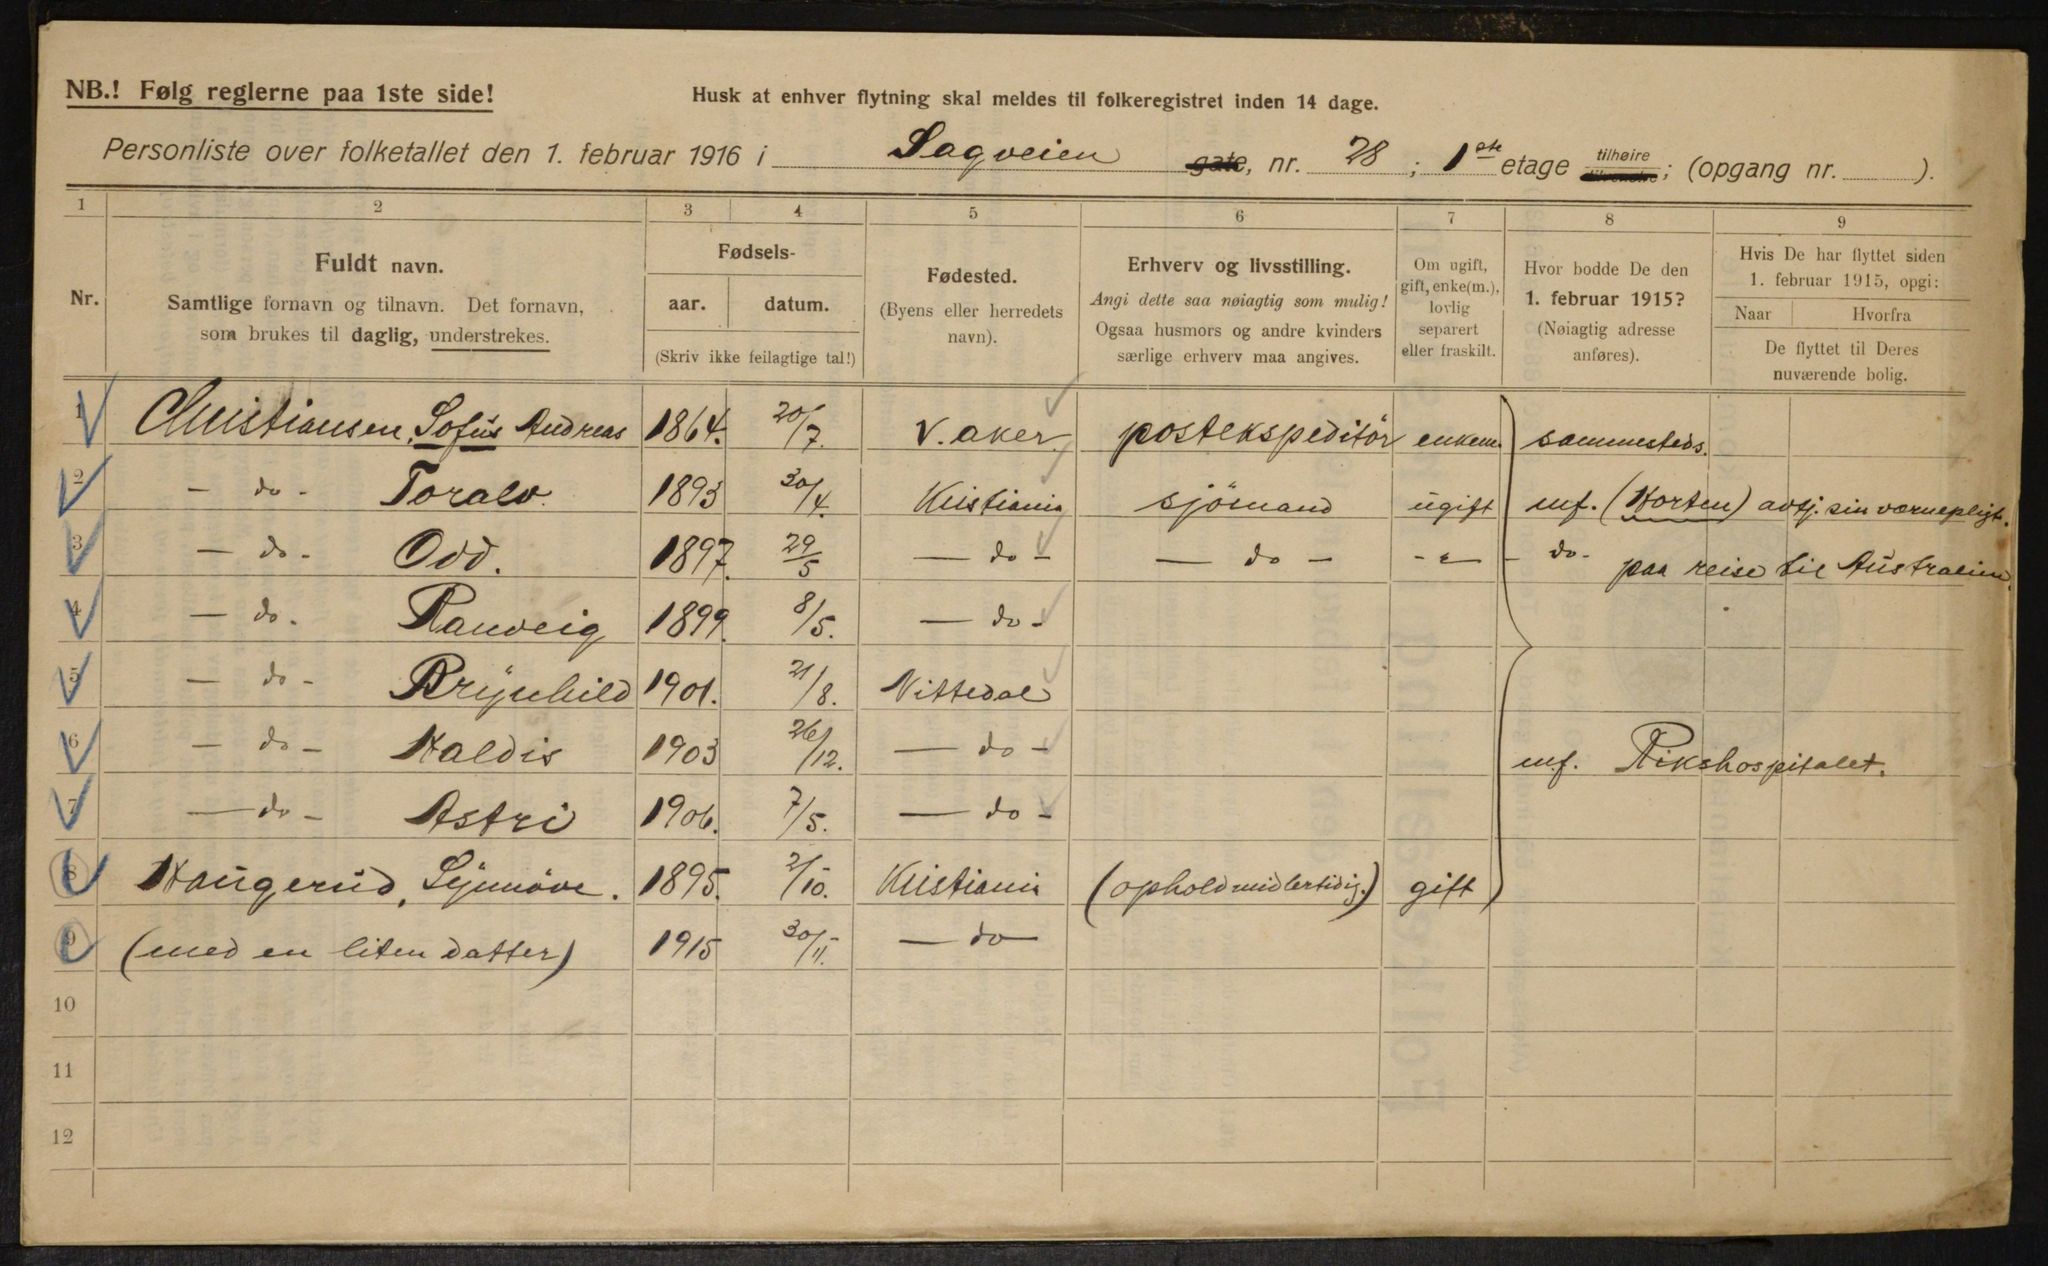 NB.! Følg reglerne paa 1ste side!
Husk at enhver flytning skal meldes til folkeregistret inden 14 dage.
Personliste over folketallet den 1. februar 1916 i Sagveien gate, nr. 28 ; 1ste etage tilhøire ; (opgang nr. ).
1 2 3 4 5 6 7 8 9
Nr.
Fuldt navn.
Samtlige fornavn og tilnavn. Det fornavn,
som brukes til daglig, understrekes.
Fødsels-
aar. datum.
(Skriv ikke feilagtige tal!)
Fødested.
(Byens eller herredets
navn).
Erhverv og livsstilling.
Angi dette saa nøiagtig som mulig!
Ogsaa husmors og andre kvinders
særlige erhverv maa angives.
Om ugift,
gift, enke(m.),
lovlig
separert
eller fraskilt.
Hvor bodde De den
1. februar 1915?
(Nøiagtig adresse
anføres).
Hvis De har flyttet siden
1. februar 1915, opgi:
Naar Hvorfra
De flyttet til Deres
nuværende bolig.
1 Christiansen, Sofus Andreas 1864. 20/7. V. aker postekspeditör enkem. sammesteds.
2 – do – Toralv. 1893 30/4. Kristiania sjömand ugift mf. (Horten) avtj. sin værnepligt.
3 – do – Odd. 1897. 29/5 – do – – do – - " - – do – paa reise til Australien.
4 – do – Ranveig 1899. 8/5. – do –
5 – do – Brynhild 1901. 21/8. Nittedal
6 – do – Haldis 1903 26/12. – do – mf. Rikshospitalet.
7 – do – Astri 1906. 7/5. – do –
8 Haugerud, Synnöve. 1895. 2/10. Kristiania (ophold midlertidig.) gift
9 (med en liten datter) 1915 30/11. – do –
10
11
12